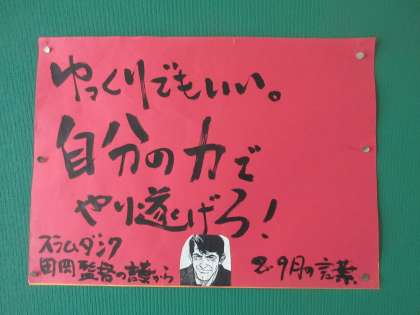 ゆっくりでもいい。
自分の力で
やり遂げろ!
スラムダンク
田岡監督の言葉から
2・9月の言葉